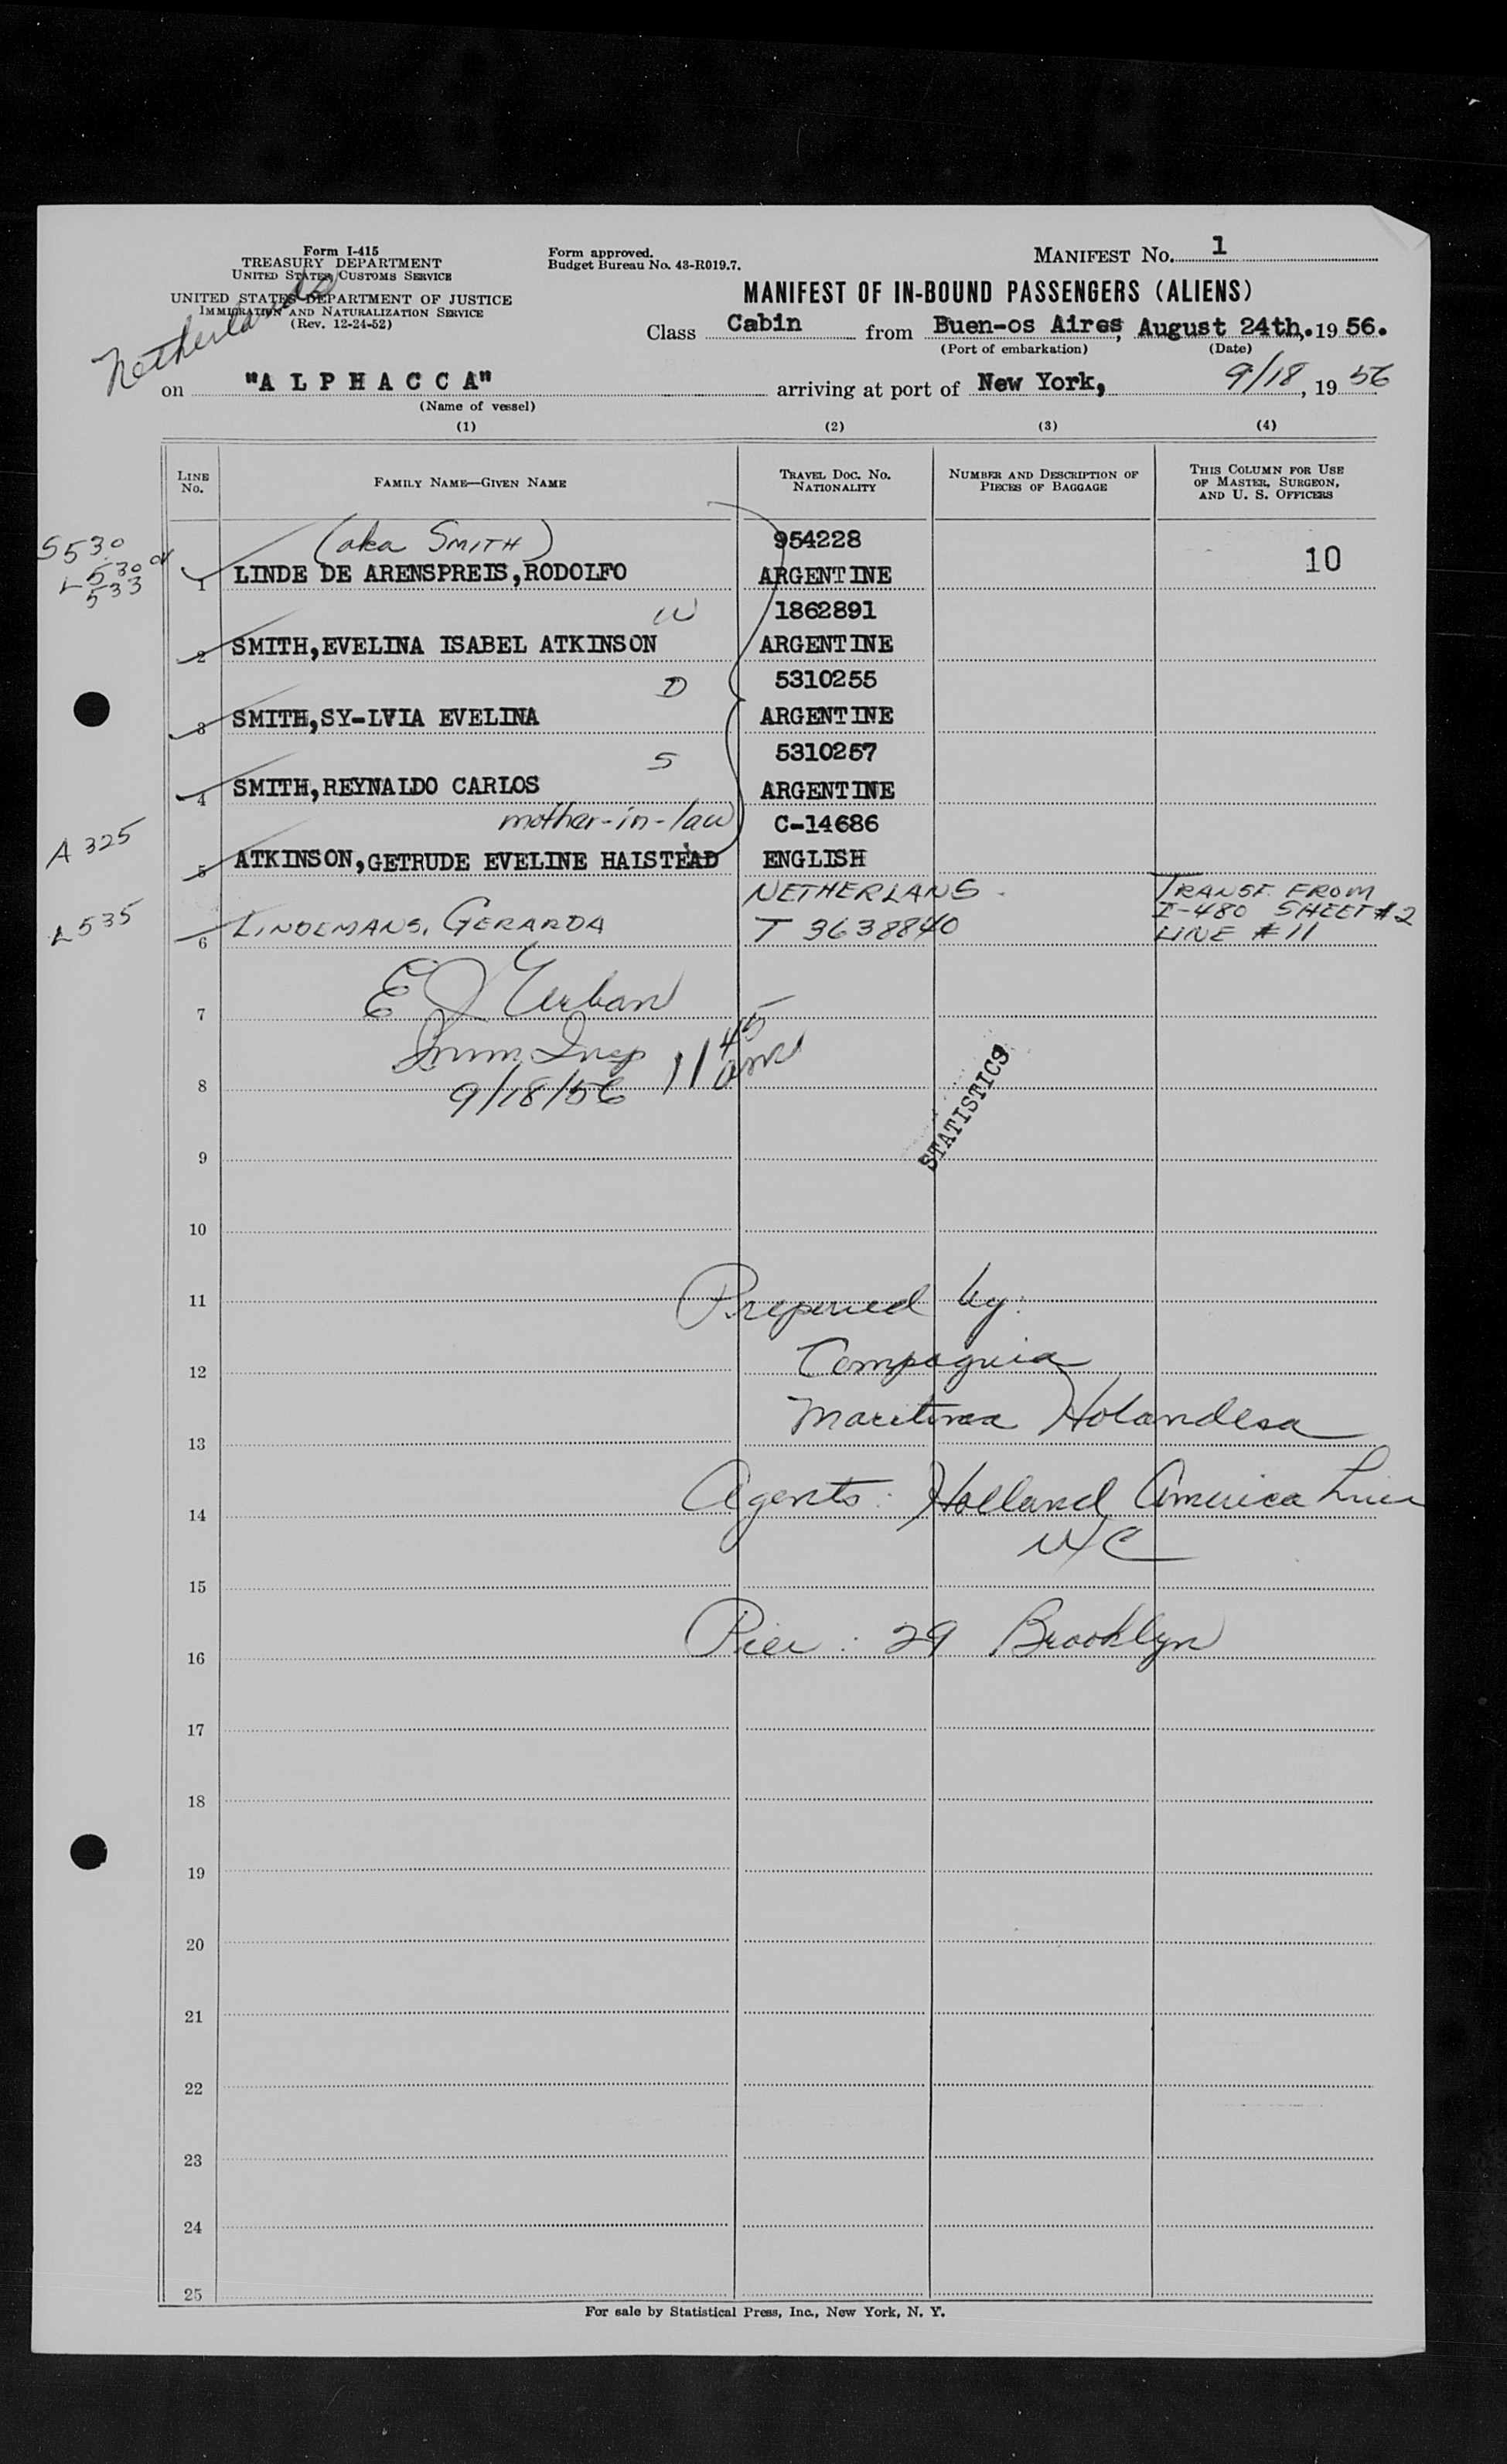 Form I-415
TREASURY DEPARTMENT
UNITED STATES CUSTOMS SERVICE
UNITED STATES DEPARTMENT OF JUSTICE
IMMIGRATION AND NATURALIZATION SERVICE
(Rev. 12-24-52)
Netherlands
Form approved.
Budget Bureau No. 43-R019.7.
MANIFEST NO. 1
MANIFEST OF IN-BOUND PASSENGERS (ALIENS)
Class Cabin from Buen-os Aires, August 24th,. 19 56.
(Port of embarkation) (Date)
on "A L P H A C C A" arriving at port of New York, 9/18, 19 56
(Name of vessel)
(1) (2) (3) (4)
LINE No. FAMILY NAME—GIVEN NAME TRAVEL DOC. NO. NATIONALITY NUMBER AND DESCRIPTION OF PIECES OF BAGGAGE THIS COLUMN FOR USE OF MASTER, SURGEON, AND U. S. OFFICERS
S530 (aka SMITH) 954228
L530 or 533 1 LINDE DE ARENSPREIS,RODOLFO ARGENTINE 10
W 1862891
2 SMITH,EVELINA ISABEL ATKINSON ARGENTINE
D 5310255
3 SMITH,SY-LVIA EVELINA ARGENTINE
S 5310257
4 SMITH,REYNALDO CARLOS ARGENTINE
mother-in-law C-14686
A 325 5 ATKINSON,GETRUDE EVELINE HAISTEAD ENGLISH
NETHERLANS. TRANSF. FROM
I-480 SHEET #2
L535 6 LINDEMANS, GERARDA T 3638840 LINE #11
7 E J Urban
Imm Insp 11 45 am
8 9/18/56
STATISTICS
9
10
11 Prepared by:
12 Compagnia
13 Maritima Holandesa
14 Agents: Holland America Line
NYC
15
16 Pier: 29 Brooklyn
17
18
19
20
21
22
23
24
25
For sale by Statistical Press, Inc., New York, N. Y.